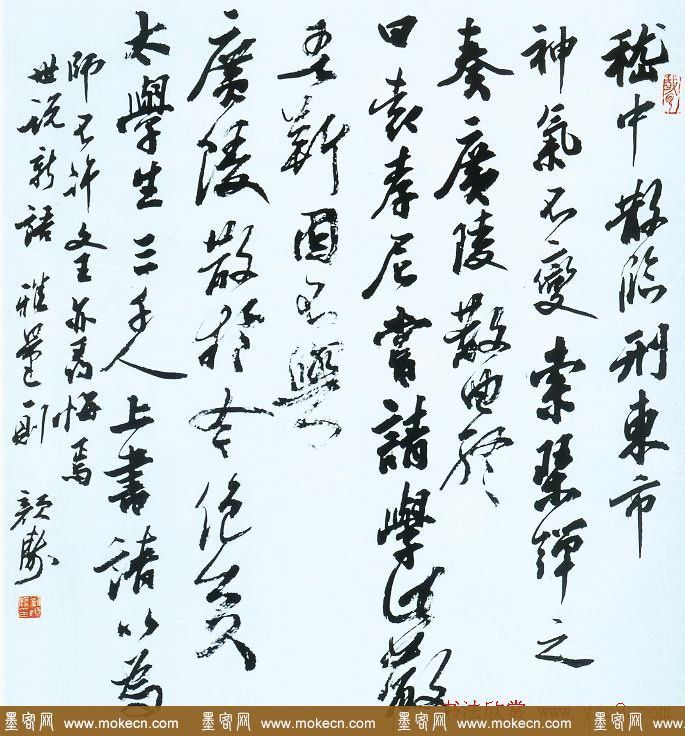 嵇中散臨刑東市
神氣不變索琴彈之
奏廣陵散曲終
曰袁孝尼嘗請學此散
吾靳固不與
廣陵散於今絕矣
太學生三千人上書請以為
師不許文王亦尋悔焉
世説新語雅量一則
书法欣赏
墨客网 www.mokecn.com 墨客网 www.mokecn.com 墨客网 www.mokecn.com 墨客网 www.mokecn.com